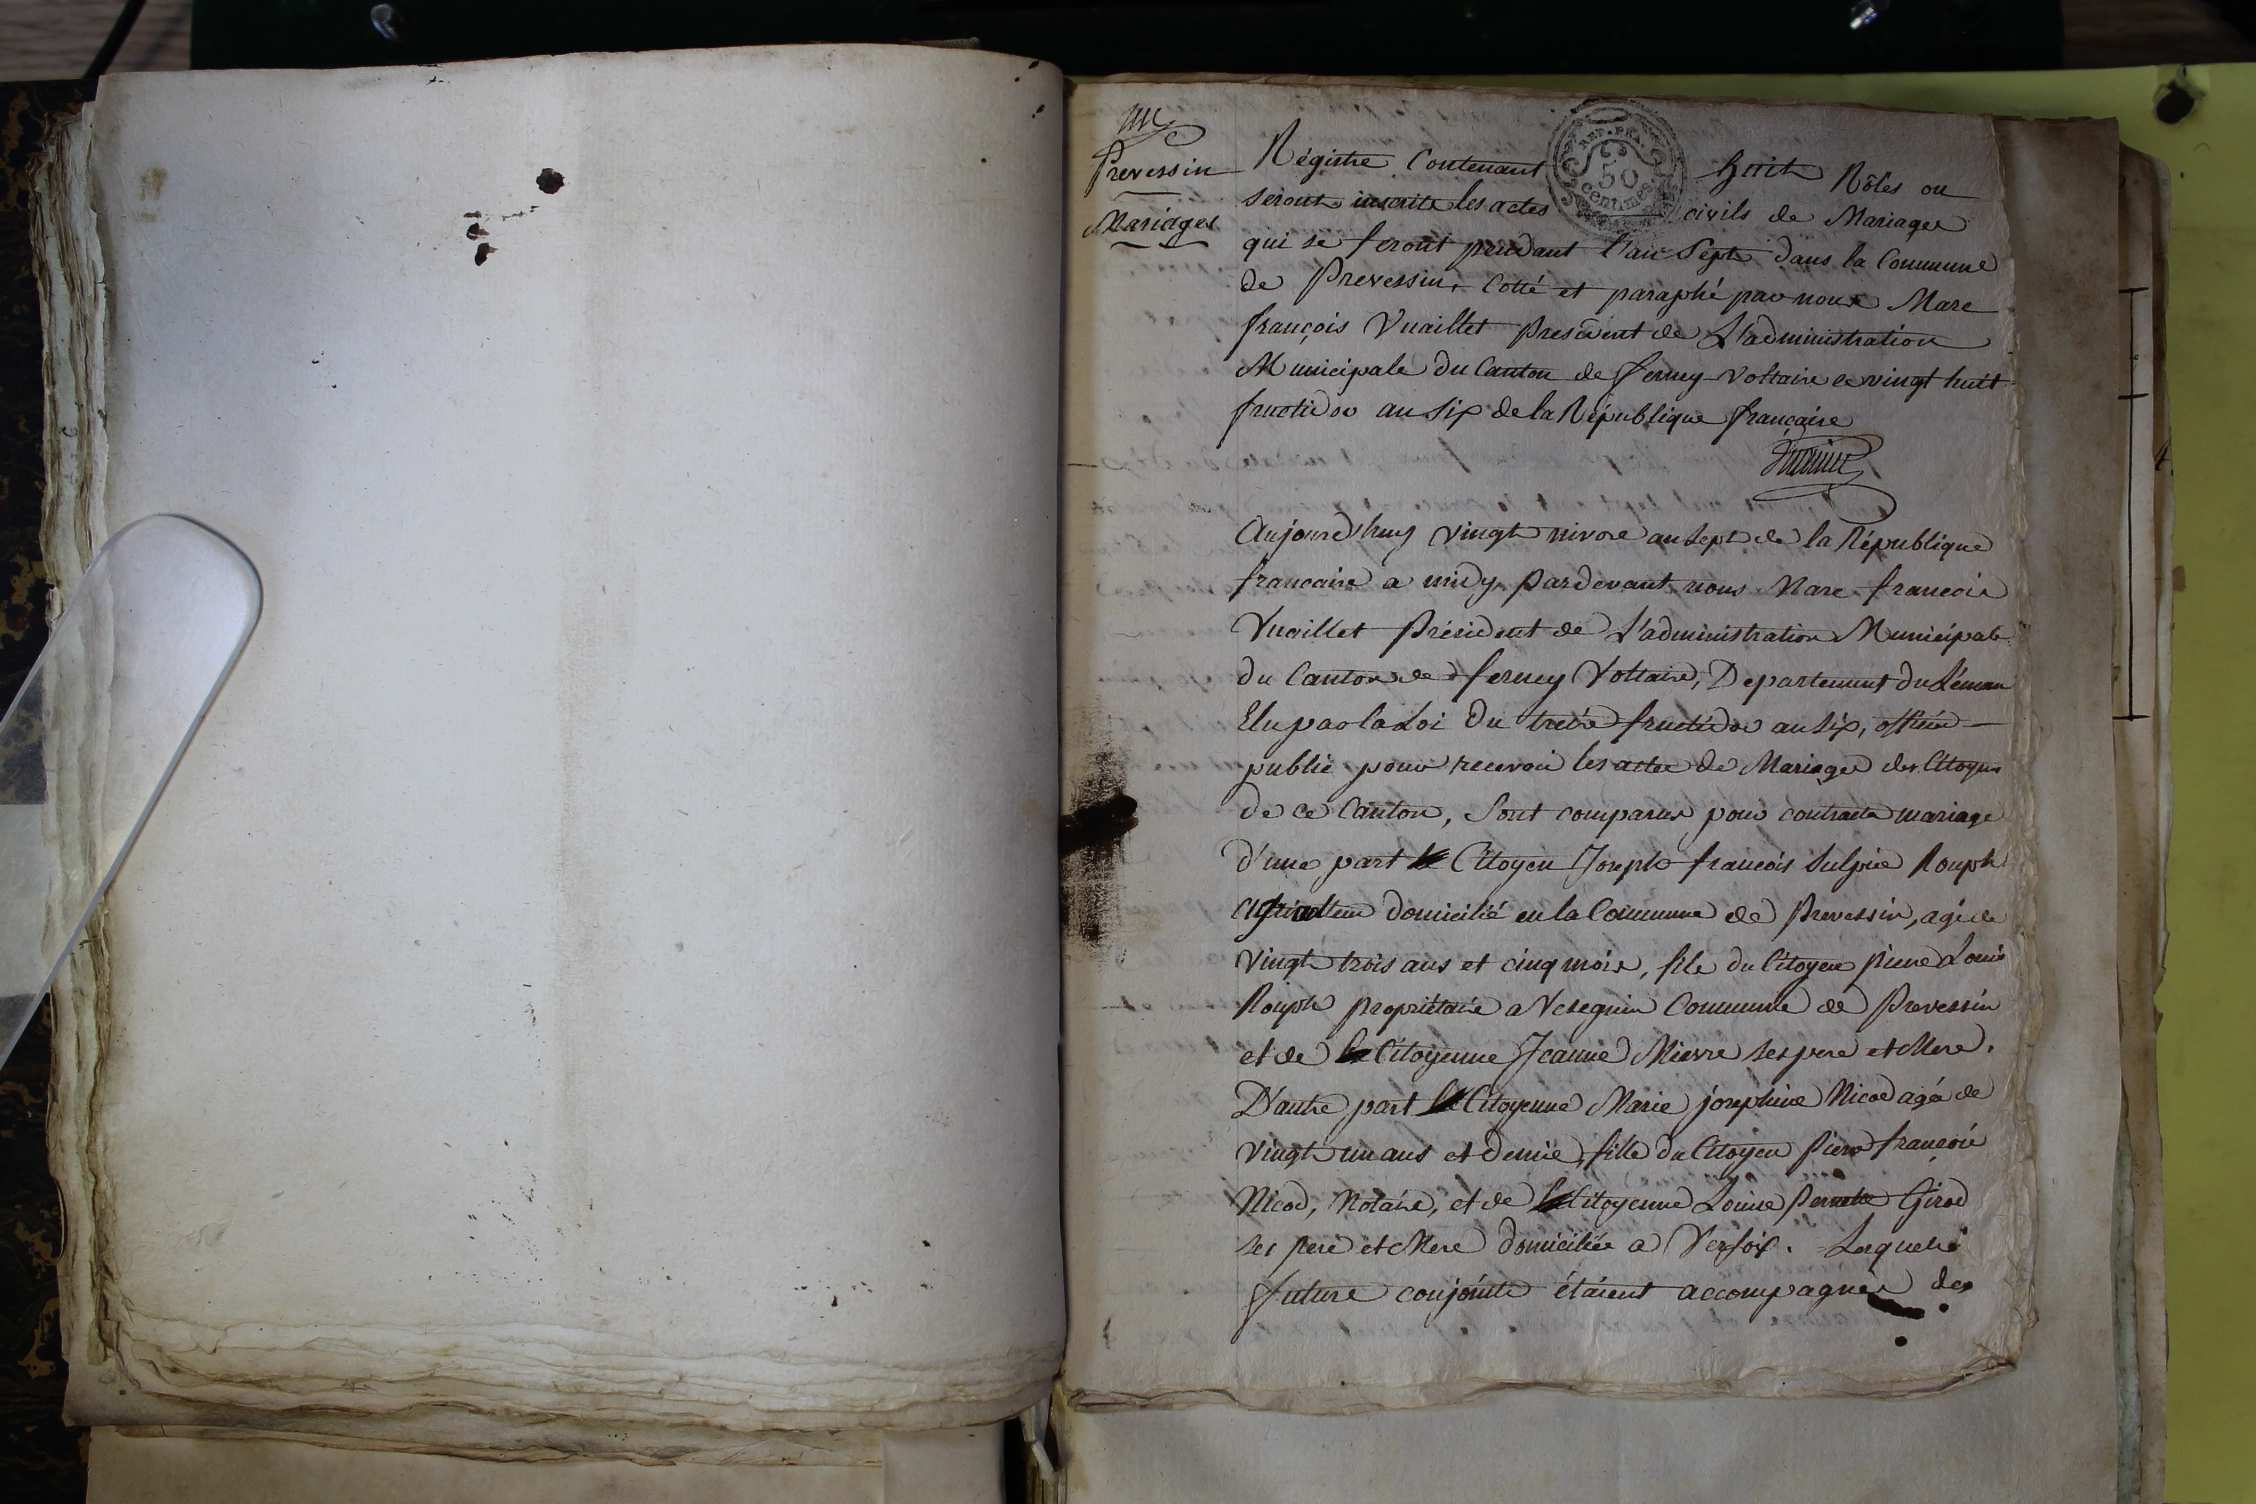 Prevessin
Mariages
REP. FRA.
50
centimes
Régistre Contenant huit Rôles ou
seront inscrits les actes civils de Mariages
qui se feront pendant l'an Sept dans la Commune
de Prevessin, Cotté et paraphé par nous Marc
françois Vuaillet president de L'administration
Municipale du Canton de ferney Voltaire le vingt huit
fructidor an six de la République française
Aujourd'huy vingt nivose an sept de la République
francaise a midy, pardevant nous Marc francois
Vuaillet Président de L'administration Municipale
du Canton de ferney Voltaire, Departement du Léman
Elu par la Loi du treize fructidor an six, officier
public pour recevoir les actes de Mariages des Citoyens
de ce Canton, Sont comparus pour contracter mariage
d'une part le Citoyen Joseph francois Sulpice Rouph
Agriculteur domicilié en la Commune de Prevessin, agé de
Vingt trois ans et cinq mois, fils du Citoyen pierre Louis
Rouph propriétaire a Vesegnin Commune de Prevessin
et de la Citoyenne Jeanne Mierre ses pere et Mere.
D'autre part la Citoyenne Marie josephine Nicod agée de
Vingt un ans et demie, fille du Citoyen Pierre francois
Nicod, Notaire, et de la Citoyenne Louise Pernette Girod
ses pere et Mere domiciliés a Versoix. Lesquels
futurs conjoints étaient accompagnés des